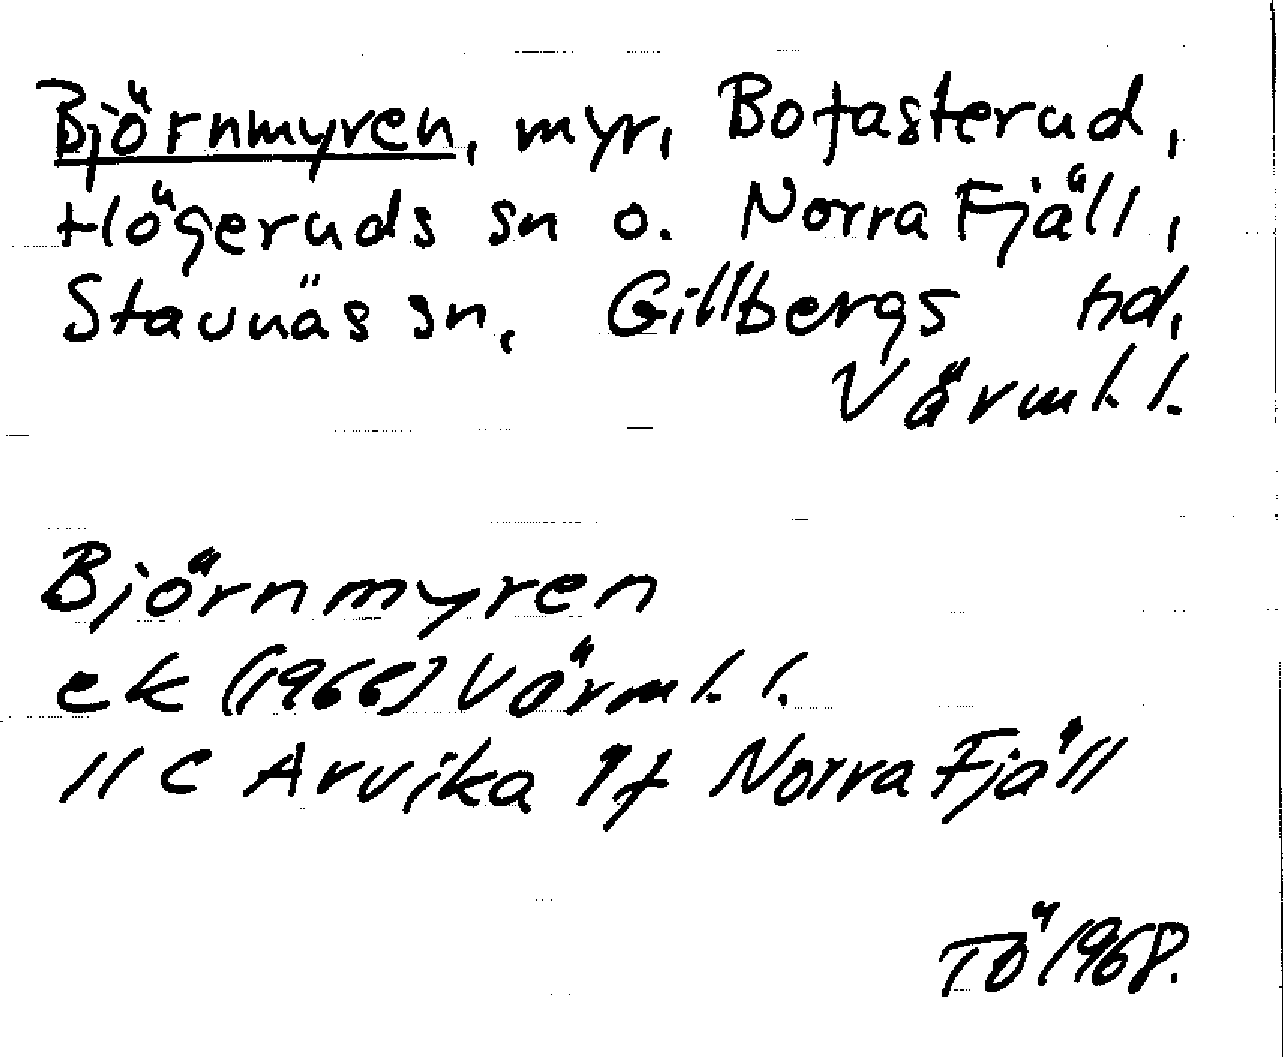 Björnmyren, myr, Bofasterud,
Högeruds sn o. Norra Fjäll,
Stavnäs sn, Gillbergs hd,
Värml. l.
Björnmyren
ek (1966) Värml. l.
11 C Arvika 9f Norra Fjäll
TÖ 1968.